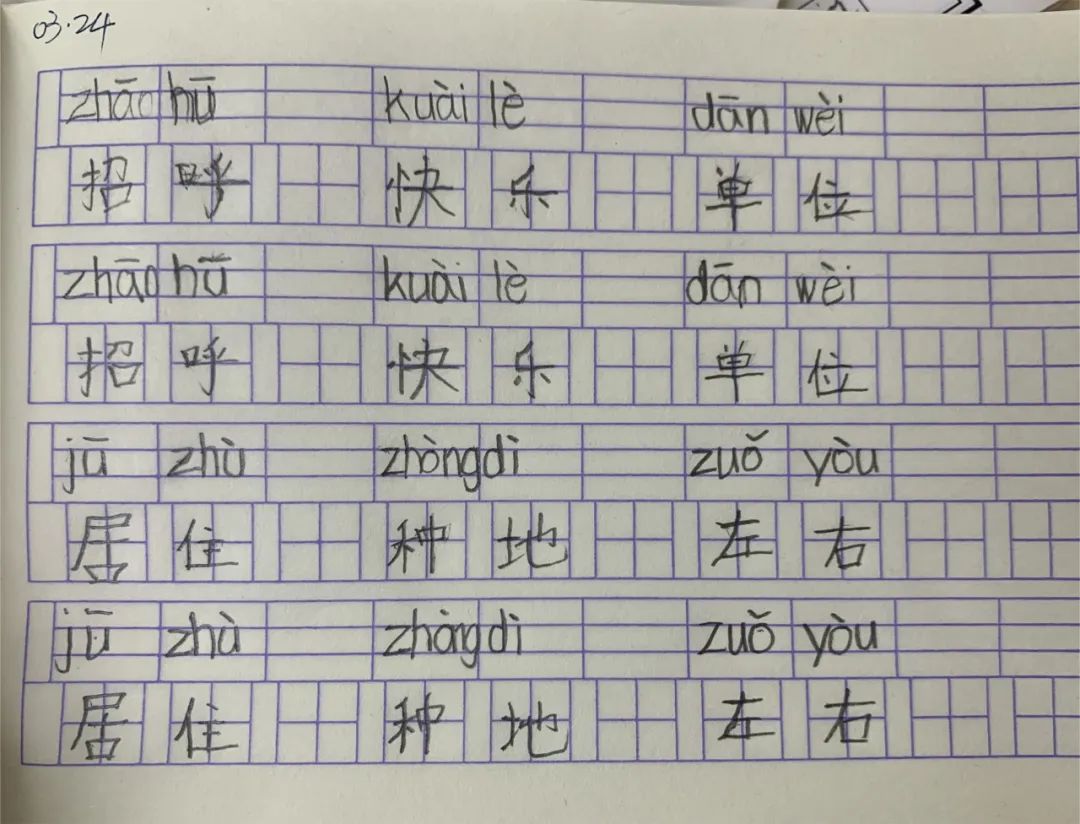 03.24
zhāo hū kuài lè dān wèi
招 呼 快 乐 单 位
zhāo hū kuài lè dān wèi
招 呼 快 乐 单 位
jū zhù zhòng dì zuǒ yòu
居 住 种 地 左 右
jū zhù zhòng dì zuǒ yòu
居 住 种 地 左 右